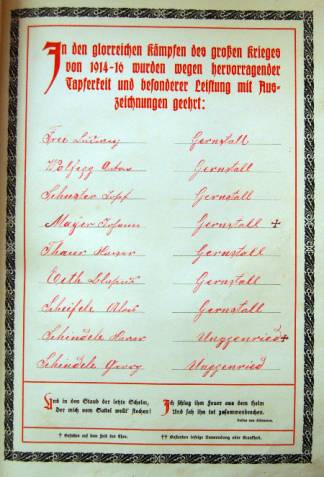 In den glorreichen Kämpfen des großen Krieges
von 1914-16 wurden wegen hervorragender
Tapferkeit und besonderer Leistung mit Aus-
zeichnungen geehrt:
Frei Ludwig Gernstall
Wolfegg Gernstall
Schuster Josef Gernstall
Mayer Johann Gernstall †
Thaner Xaver Gernstall
Gernstall
Scheifele Alois Gernstall
Schindele Xaver Unggenried †
Schindele Georg Unggenried
Und in dem Staub der letzte Schelm,
Der mich vom Sattel wollt' stechen!
Ich schlug ihm Feuer aus dem Helm
Und sah ihn tot zusammenbrechen.
† Gefallen auf dem Feld der Ehre.
†† Gestorben infolge Verwundung oder Krankheit.